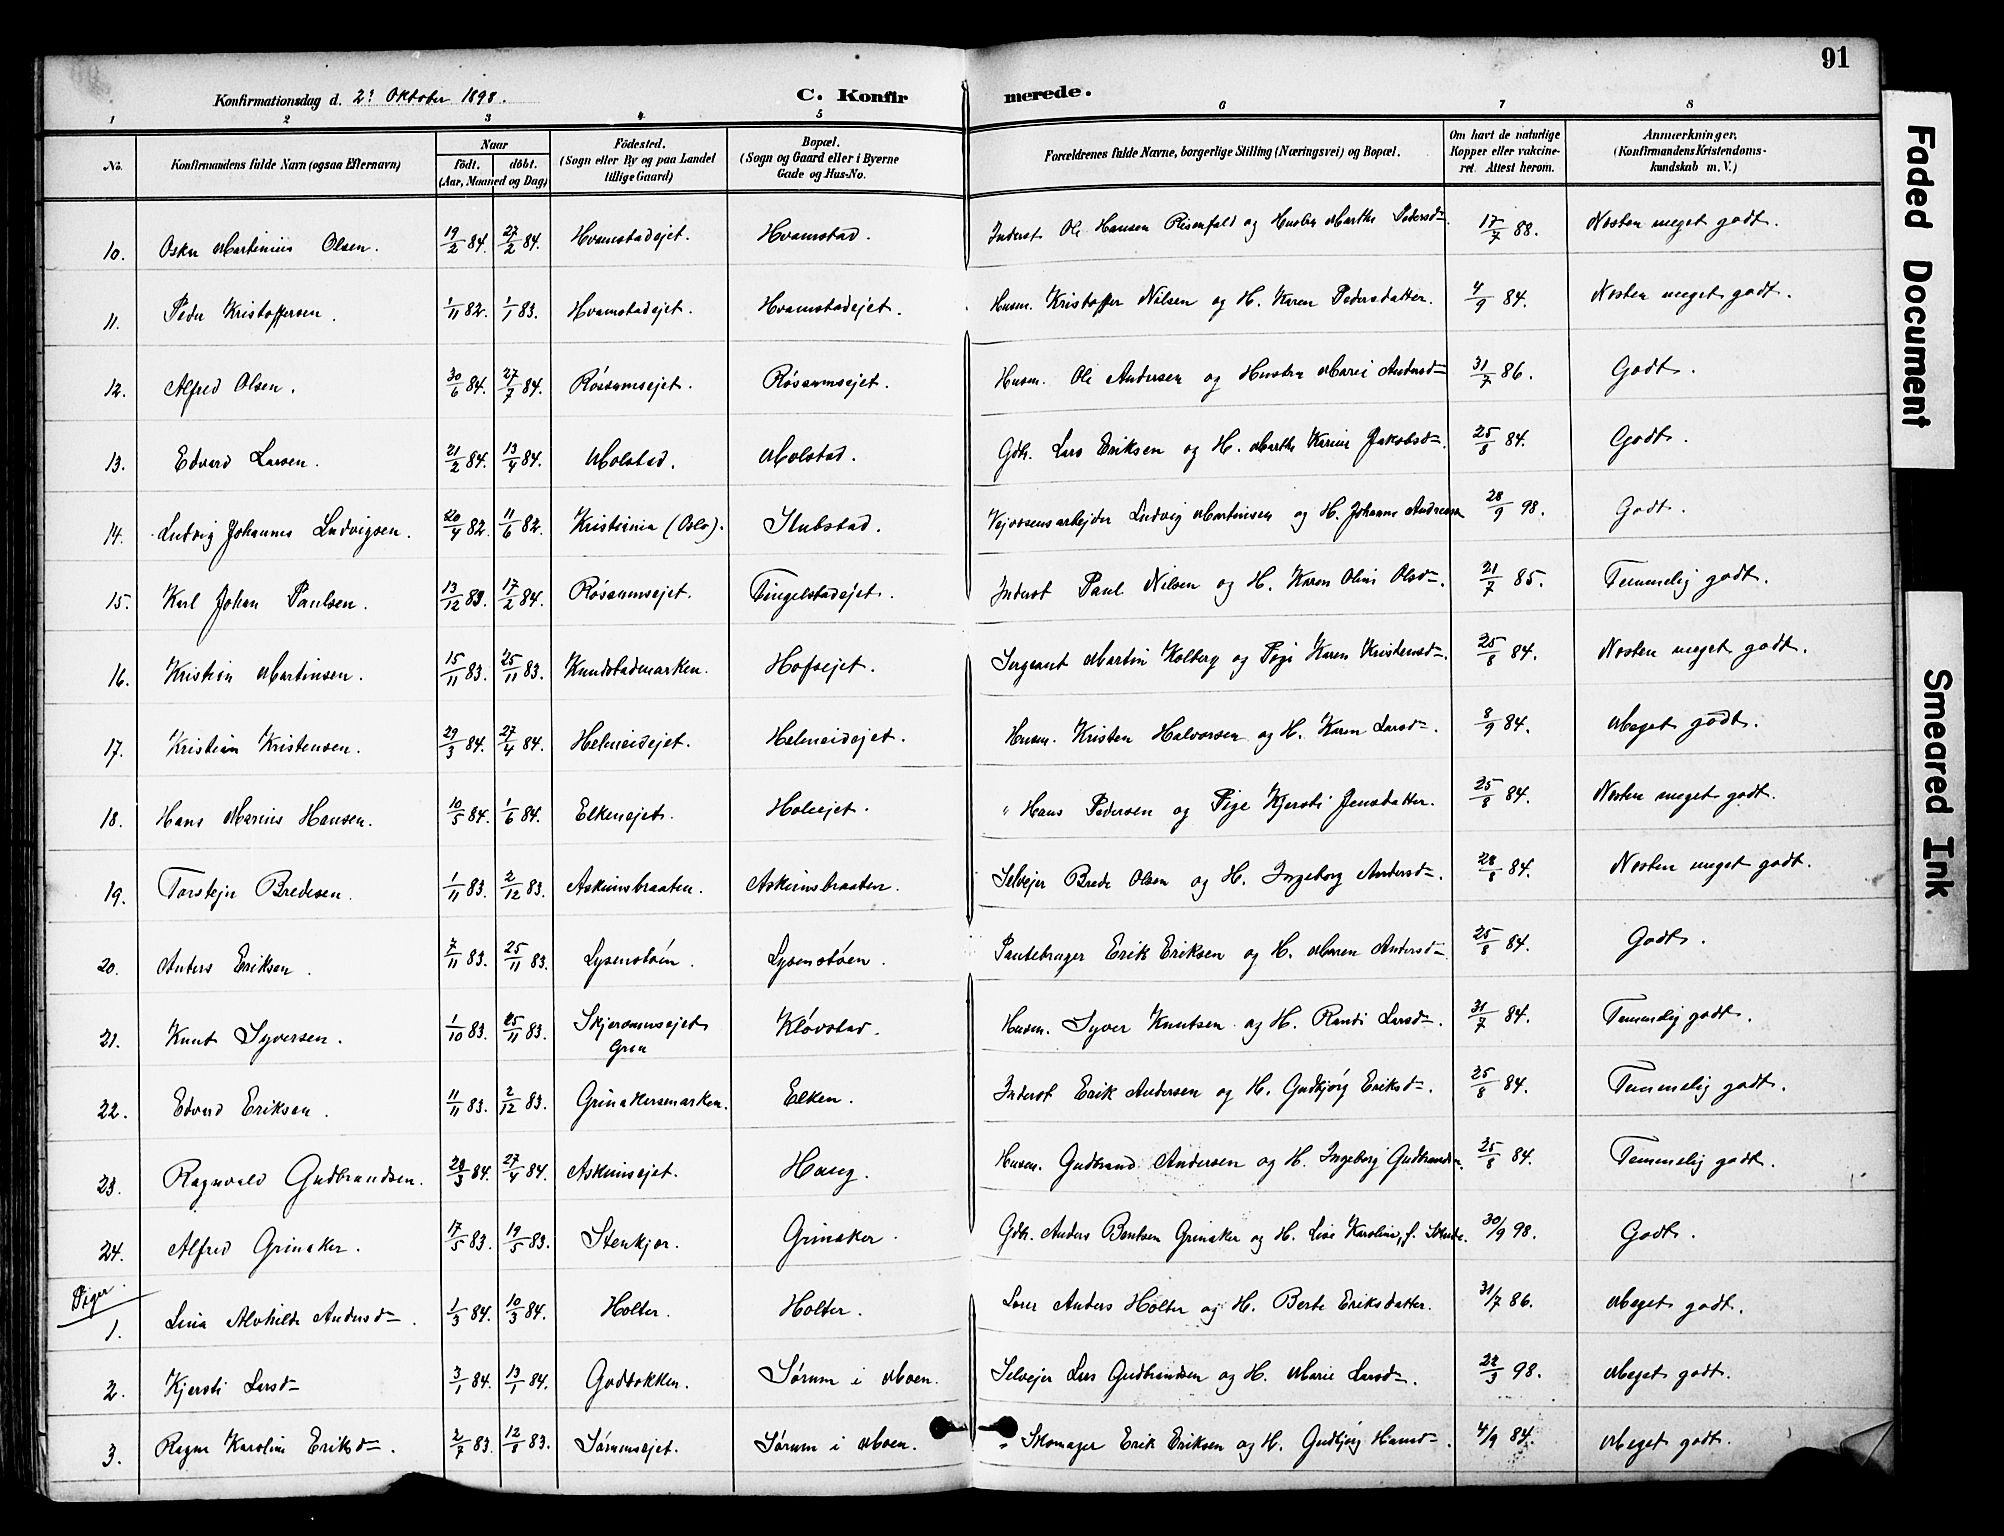 91
Konfirmationsdag d. 2: Oktober 1898.
C. Konfirmerede.
1 2 3 4 5 6 7 8
No. Konfirmandens fulde Navn (ogsaa Efternavn) Naar født. døbt. (Aar, Maaned og Dag) Fødested. (Sogn eller By og paa Landet tillige Gaard) Bopæl. (Sogn og Gaard eller i Byerne Gade og Hus-No. Forældrenes fulde Navne, borgerlige Stilling (Næringsvei) og Bopæl. Om havt de naturlige Kopper eller vakcineret. Attest herom. Anmærkninger. (Konfirmandens Kristendomskundskab m. V.)
10. Oskar Martinius Olsen. 19/2 84. 27/2 84. Hvamstadejet. Hvamstad. Inderst Ole Hansen Rosenfald og Hustru Marthe Pedersd= 17/7 88. Næsten meget godt.
11. Peder Kristoffersen. 1/11 82. 1/1 83. Hvamstadejet. Hvamstadejet. Husm. Kristoffer Nilsen og H. Karen Pedersdatter. 4/9 84. Næsten meget godt.
12. Alfred Olsen. 30/6 84. 27/7 84. Røsumsejet. Røsumsejet. Husm. Ole Andersen og Hustru Marie Andersd= 31/7 86. Godt.
13. Edvard Larsen. 21/2 84. 13/4 84. Molstad. Molstad. Gdbr. Lars Eriksen og H. Marthe Karine Jakobsd=. 25/8 84. Godt.
14. Ludvig Johannes Ludvigsen. 20/4 82. 11/6 82. Kristiania (Oslo). Stubstad. Vejvæsensarbejder Ludvig Martinsen og H. Johanne 28/9 98. Godt.
15. Karl Johan Paulsen. 13/12 83. 17/2 84. Røsumsejet. Tingelstadejet. Inderst Paul Nilsen og H. Karen Oline Olsd=. 21/7 85. Temmelig godt.
16. Kristian Martinsen. 15/11 83. 25/11 83. Knudstadmarken. Hofsejet. Sergeant Martin Kolberg og Pige Karen Kristensd=. 25/8 84. Næsten meget godt.
17. Kristian Kristensen. 29/3 84. 27/4 84. Helmeidejet. Helmeidejet. Husm. Kristen Halvorsen og H. Karen Larsd=. 8/9 84. Meget godt.
18. Hans Marius Hansen. 10/5 84. 1/6 84. Elkenejet. Holeejet. " Hans Pedersen og Pige Kjersti Jensdatter. 25/8 84. Næsten meget godt.
19. Torstejn Bredesen. 1/11 83. 2/12 83. Askimsbraaten. Askimsbraaten. Selvejer Brede Olsen og H. Ingeborg Andersd=. 28/8 84. Næsten meget godt.
20. Anders Eriksen. 7/11 83. 25/11 83. Lysenstøen. Lysenstøen. Pantebruger Erik Eriksen og H. Maren Andersd= 25/8 84. Godt.
21. Knut Syversen. 1/10 83. 25/11 83. Skjervumsejet Gran Kløvstad. Husm. Syver Knutsen og H. Randi Larsd=. 31/7 84. Temmelig godt.
22. Edvard Eriksen. 11/11 83. 2/12 83. Grinakersmarken. Elken. Inderst Erik Andersen og H. Gudbjørg Eriksd=. 25/8 84. Temmelig godt.
23. Ragnvald Gudbrandsen. 28/3 84. 27/4 84. Askimsejet. Haug. Husm. Gudbrand Andersen og H. Ingeborg Gudbrandsd. 25/8 84. Temmelig godt.
24. Alfred Grinaker. 17/5 83. 19/5 83. Stenkjær. Grinaker. Gdbr. Anders Bentsen Grinaker og H. Lise Karoline, f. 30/9 98. Godt.
Piger
1. Lina Alvhilde Andersd=. 1/3 84. 10/3 84. Holter. Holter. Lærer Anders Holter og H. Berte Eriksdatter. 31/7 86. Meget godt.
2. Kjersti Larsd= 3/1 84. 13/1 84. Godbakken. Sørum i Moen. Selvejer Lars Gudbrandsen og H. Marie Larsd=. 22/3 98. Meget godt.
3. Ragna Karoline Eriksd=. 2/7 83. 12/8 83. Sørumsejet. Sørum i Moen. " Skomager Erik Eriksen og H. Gudbjørg Hansd=. 4/9 84. Meget godt.
Faded Document
Smeared Ink